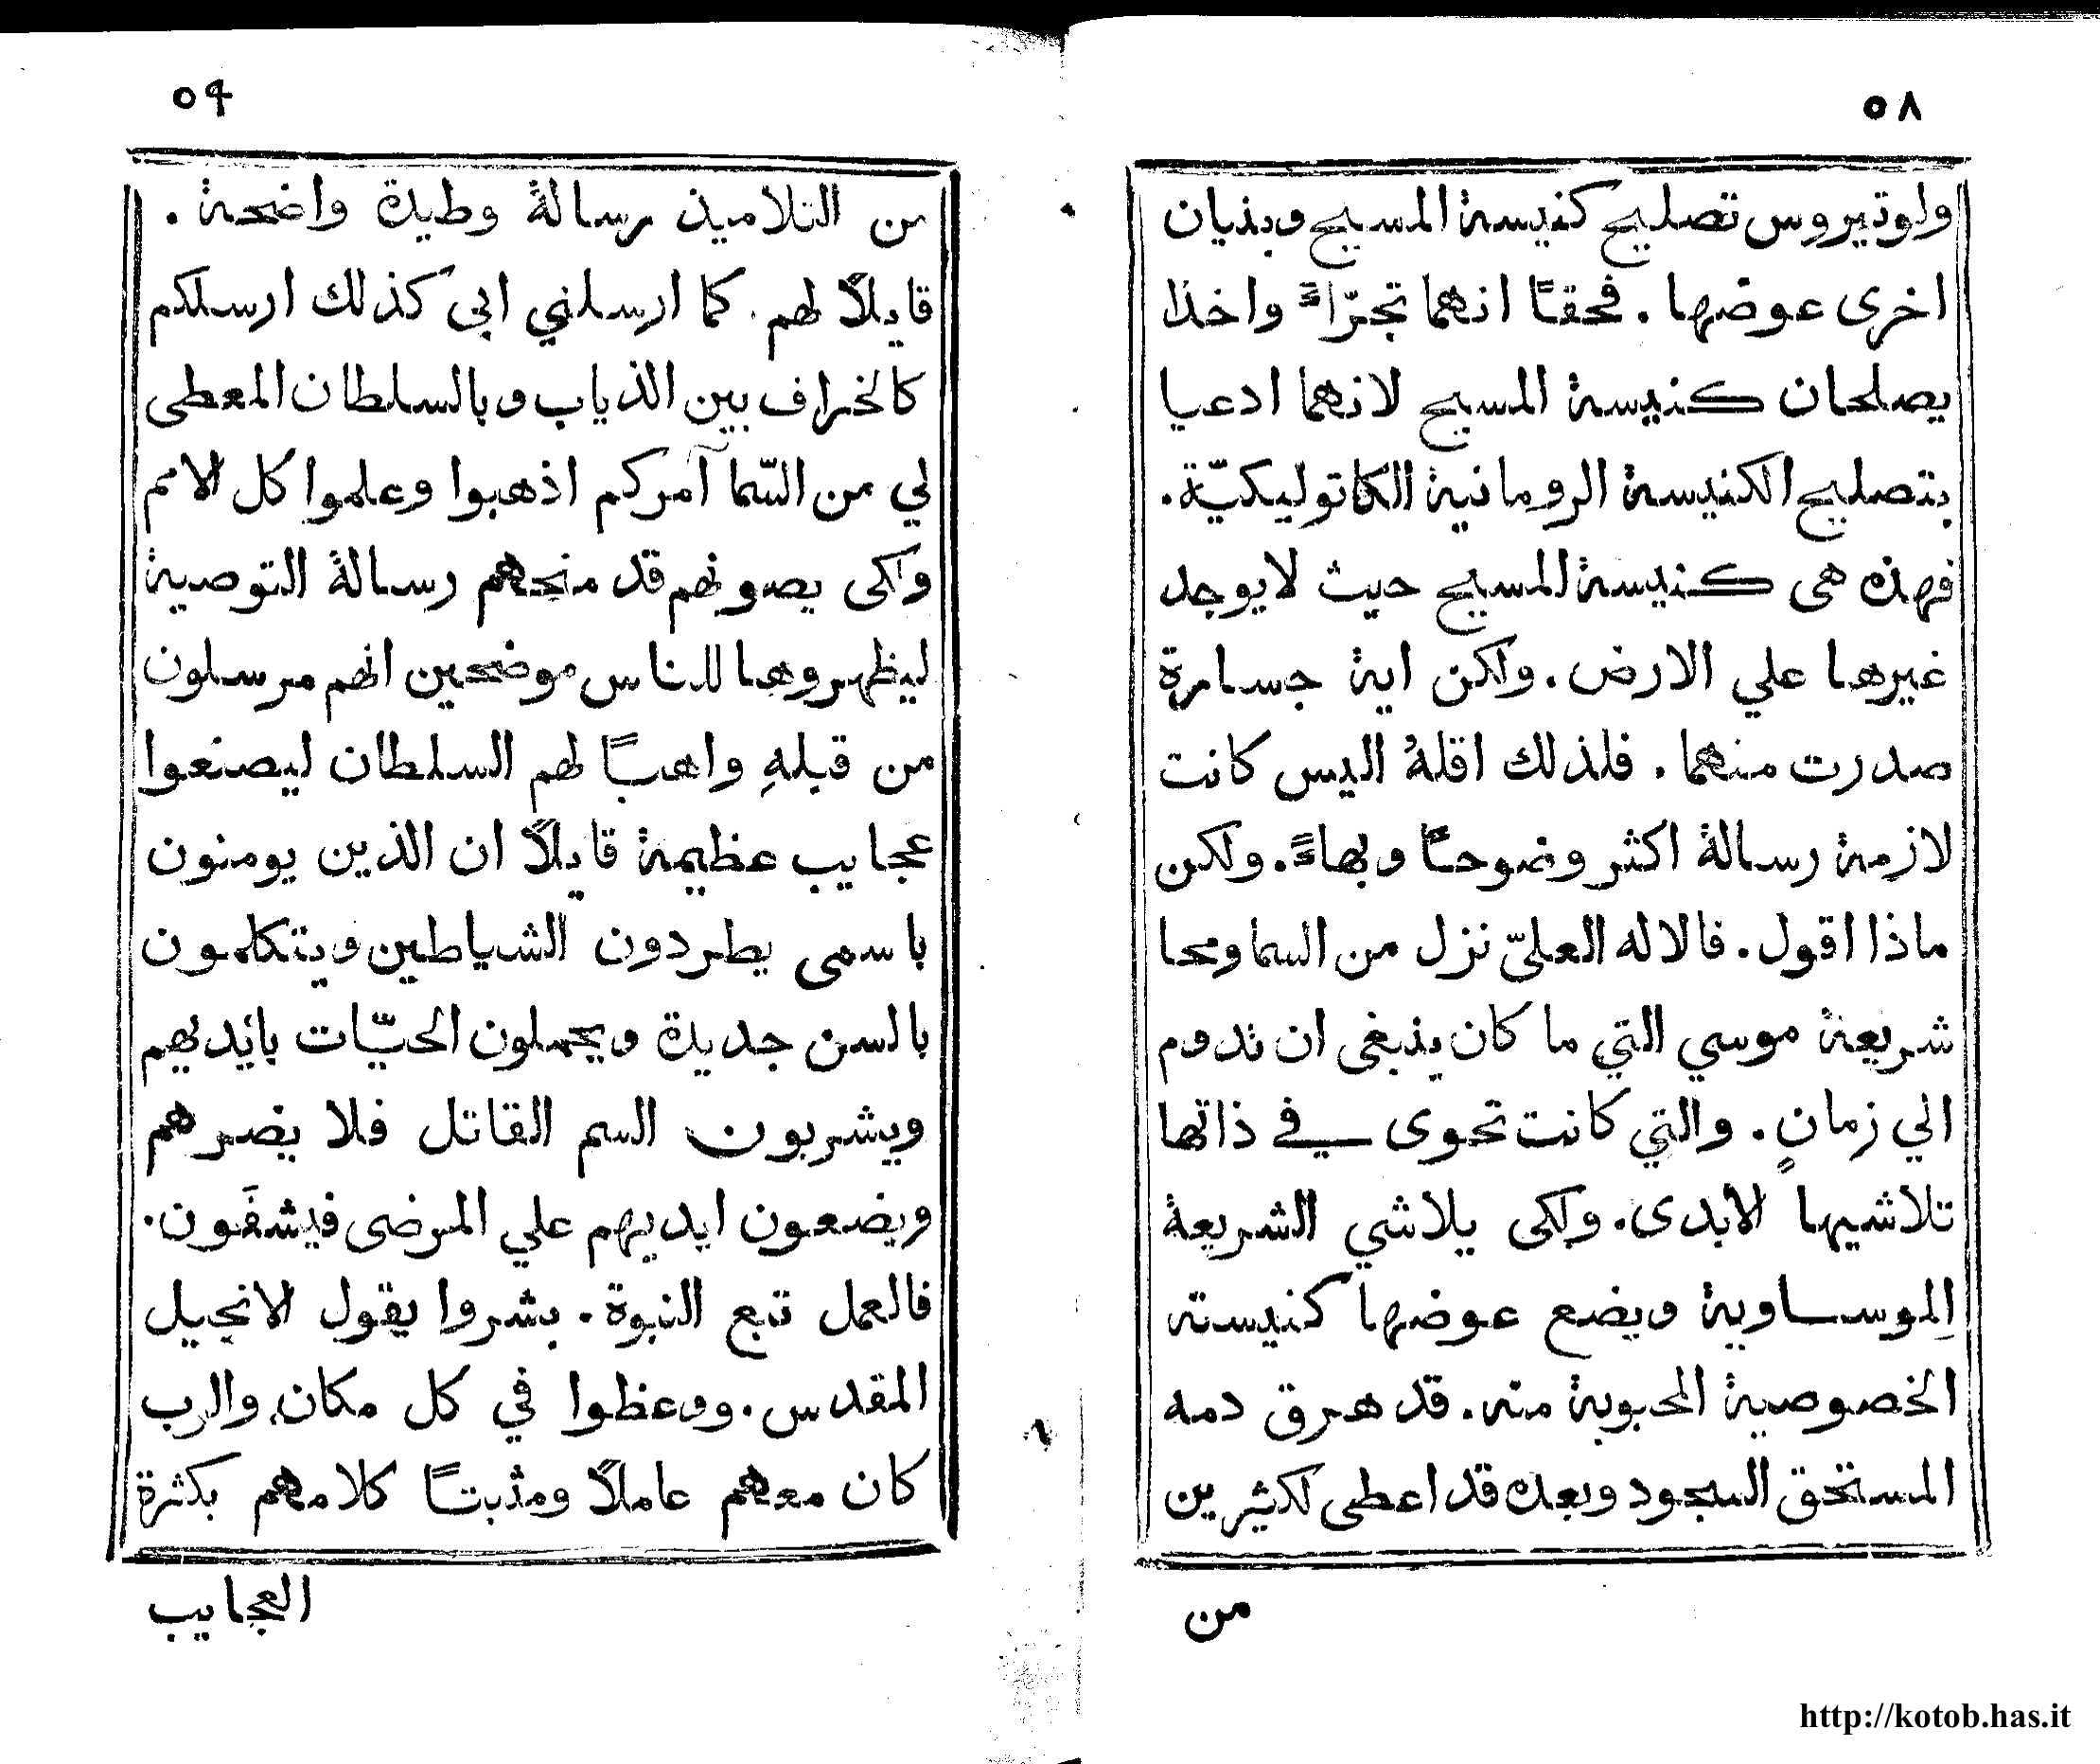 ٥٨
ولوتيروس تصليح كنيسة المسيح وبنيان
اخرى عوضها. فحقًا انهما تجرّاءً واخذا
يصلحان كنيسة المسيح لانهما ادعيا
بتصليح الكنيسة الرومانية الكاتوليكيّة.
فهذه هى كنيسة المسيح حيث لايوجد
غيرها علي الارض. ولكن اية جسارة
صدرت منهما. فلذلك اقلهُ اليس كانت
لازمة رسالة اكثر وضوحًا وبهاءً. ولكن
ماذا اقول. فالاله العليّ نزل من السما ومحا
شريعة موسي التي ما كان ينبغى ان تدوم
الي زمانٍ. والتي كانت تحوى في ذاتها
تلاشيها الابدى. ولكى يلاشي الشريعة
الموساوية ويضع عوضها كنيسته
الخصوصية المحبوبة منه. قد هرق دمه
المستحق السجود وبعده قد اعطى لكثيرين
من
٥٩
من التلاميذ رسالةً وطيدة واضحة.
قايلًا لهم. كما ارسلني ابى كذلك ارسلكم
كالخراف بين الذياب وبالسلطان المعطى
لي من السّما آمركم اذهبوا وعلموا كل الامم
ولكى يصونهم قد منحهم رسالة التوصية
ليظهروها للناس موضحين انهم مرسلون
من قبلهِ واهبًا لهم السلطان ليصنعوا
عجايب عظيمة قايلًا ان الذين يومنون
باسمى يطردون الشياطين ويتكلمون
بالسن جديدة ويحملون الحيّات بايديهم
ويشربون السم القاتل فلا يضرهم
ويضعون ايديهم علي المرضى فيشفَون.
فالعمل تبع النبوة. بشروا يقول الانجيل
المقدس. ووعظوا في كل مكان. والرب
كان معهم عاملًا ومثبتًا كلامهم بكثرة
العجايب
http://kotob.has.it